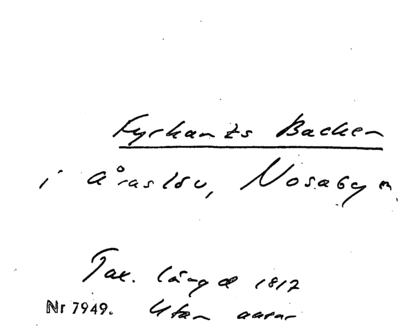 Fyrkants Backen
i Åraslöv, Nosaby m.
Tax. längd 1812
Nr 7949. Utan